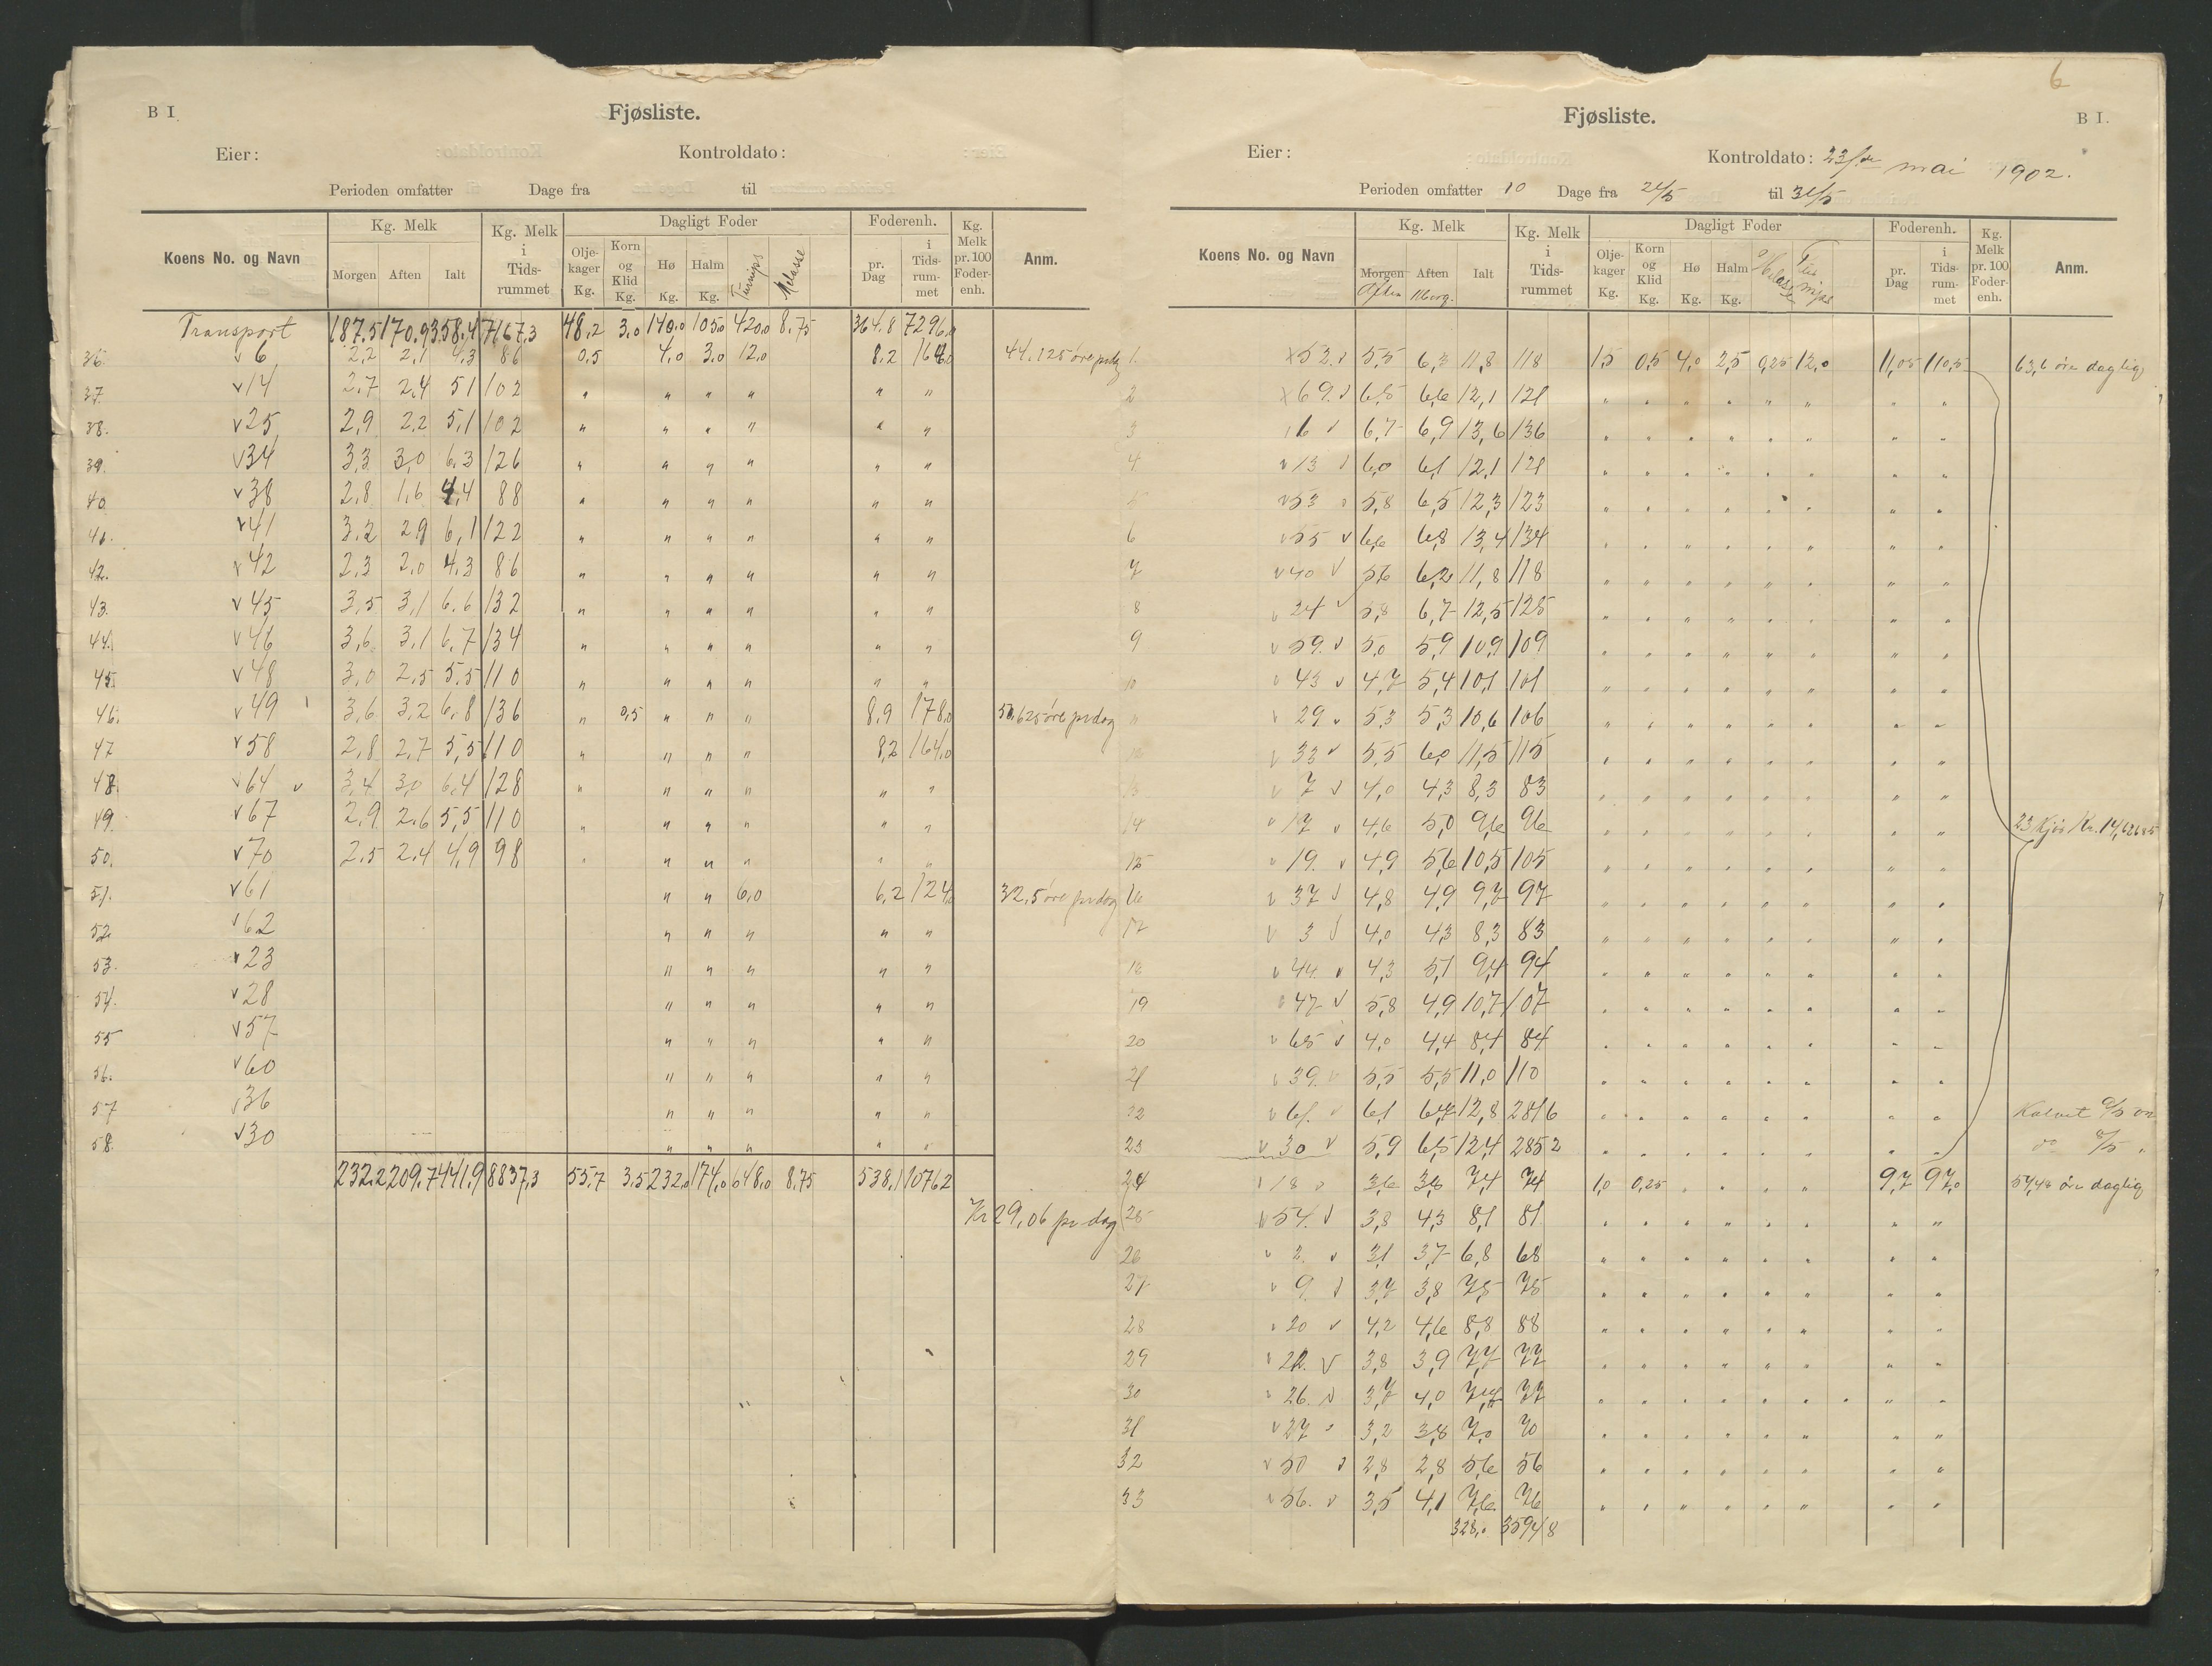 B I.
Fjøsliste.
Eier:
Kontroldato:
Perioden omfatter Dage fra til
Koens No. og Navn Kg. Melk Kg. Melk i Tids-rummet Dagligt Foder Foderenh. Kg. Melk pr. 100 Foder-enh. Anm.
Morgen Aften Ialt Olje-kager Kg. Korn og Klid Kg. Hø Kg. Halm Kg. Turnips Melasse pr. Dag i Tids-rum-met
Transport 187,5 170,9 358,4 7167,3 48,2 3,0 140,0 105,0 420,0 8,75 364,8 7296,0
36. v 6 2,2 2,1 4,3 86 0,5 4,0 3,0 12,0 8,2 164,0 44,125 øre pr dag
37. v 14 2,7 2,4 5,1 102 " " " " " "
38. v 25 2,9 2,2 5,1 102 " " " " " "
39. v 34 3,3 3,0 6,3 126 " " " " " "
40. v 38 2,8 1,6 4,4 88 " " " " " "
41. v 41 3,2 2,9 6,1 122 " " " " " "
42. v 42 2,3 2,0 4,3 86 " " " " " "
43. v 45 3,5 3,1 6,6 132 " " " " " "
44. v 46 3,6 3,1 6,7 134 " " " " " "
45. v 48 3,0 2,5 5,5 110 " " " " " "
46. v 49 3,6 3,2 6,8 136 " 0,5 " " " 8,9 178,0 50,625 øre pr dag
47 v 58 2,8 2,7 5,5 110 " " " " 8,2 164,0
48. v 64 v 3,4 3,0 6,4 128 " " " " " "
49. v 67 2,9 2,6 5,5 110 " " " " " "
50. v 70 2,5 2,4 4,9 98 " " " " " "
51. v 61 " " 6,0 6,2 124,0 32,5 øre pr dag
52. v 62 " " " " "
53. v 23 " " " " "
54. v 28 " " " " "
55 v 57 " " " " "
56. v 60 " " " " "
57 v 36 " " " " "
58. v 30 " " " " "
232,2 209,7 441,9 8837,3 55,7 3,5 232,0 174,0 648,0 8,75 538,1 10762
Kr 29,06 pr dag
6
Fjøsliste.
B I.
Eier:
Kontroldato: 23/5 mai 1902.
Perioden omfatter 10 Dage fra 21/5 til 31/5
Koens No. og Navn Kg. Melk Kg. Melk i Tids-rummet Dagligt Foder Foderenh. Kg. Melk pr. 100 Foder-enh. Anm.
Morgen Aften Ialt Olje-kager Kg. Korn og Klid Kg. Hø Kg. Halm Kg. Melasse Turnips pr. Dag i Tids-rum-met
Aften Morg.
1. x 52. v 5,5 6,3 11,8 118 1,5 0,5 4,0 2,5 0,25 12,0 11,05 110,5 63,6 øre daglig
2 x 69. v 6,5 6,6 12,1 121 " " " " " " " "
3 16 v 6,7 6,9 13,6 136 " " " " " " " "
4 v 13 v 6,0 6,1 12,1 121 " " " " " " " "
5 v 53 v 5,8 6,5 12,3 123 " " " " " " " "
6 v 55 v 6,6 6,8 13,4 134 " " " " " " " "
7 v 40 v 5,6 6,2 11,8 118 " " " " " " " "
8 v 24 v 5,8 6,7 12,5 125 " " " " " " " "
9 v 59. v 5,0 5,9 10,9 109 " " " " " " " "
10 v 43 v 4,7 5,4 10,1 101 " " " " " " " "
11 v 29 v 5,3 5,3 10,6 106 " " " " " " " "
12 v 33 v 5,5 6,0 11,5 115 " " " " " " " "
13 v 7 v 4,0 4,3 8,3 83 " " " " " " " "
14 v 17 v 4,6 5,0 9,6 96 " " " " " " " " 23 Kjør Kr. 14,62685
15 v 19. v 4,9 5,6 10,5 105 " " " " " " " "
16 v 37 v 4,8 4,9 9,7 97 " " " " " " " "
17 v 3 v 4,0 4,3 8,3 83 " " " " " " " "
18 v 44. v 4,3 5,1 9,4 94 " " " " " " " "
19 v 47 v 5,8 4,9 10,7 107 " " " " " " " "
20 v 65 v 4,0 4,4 8,4 84 " " " " " " " "
21 v 39. v 5,5 5,5 11,0 110 " " " " " " " "
22 v 61. v 6,1 6,7 12,8 2816 " " " " " " " " Kalvet 9/5 02
23 v 30 v 5,9 6,5 12,4 2852 " " " " " " " " do 8/5 "
24 v 18 v 3,6 3,8 7,4 74 1,0 0,25 " " " " 9,7 97,0 54,48 øre daglig
25 v 54. v 3,8 4,3 8,1 81 " " " " " " " "
26 v 2. v 3,1 3,7 6,8 68 " " " " " " " "
27 v 9. v 3,7 3,8 7,5 75 " " " " " " " "
28 v 20 v 4,2 4,6 8,8 88 " " " " " " " "
29 v 22. v 3,8 3,9 7,7 77 " " " " " " " "
30 v 26. v 3,7 4,0 7,7 77 " " " " " " " "
31 v 27 v 3,2 3,8 7,0 70 " " " " " " " "
32 v 50 v 2,8 2,8 5,6 56 " " " " " " " "
33 v 56. v 3,5 4,1 7,6 76 " " " " " " " "
328,0 35948